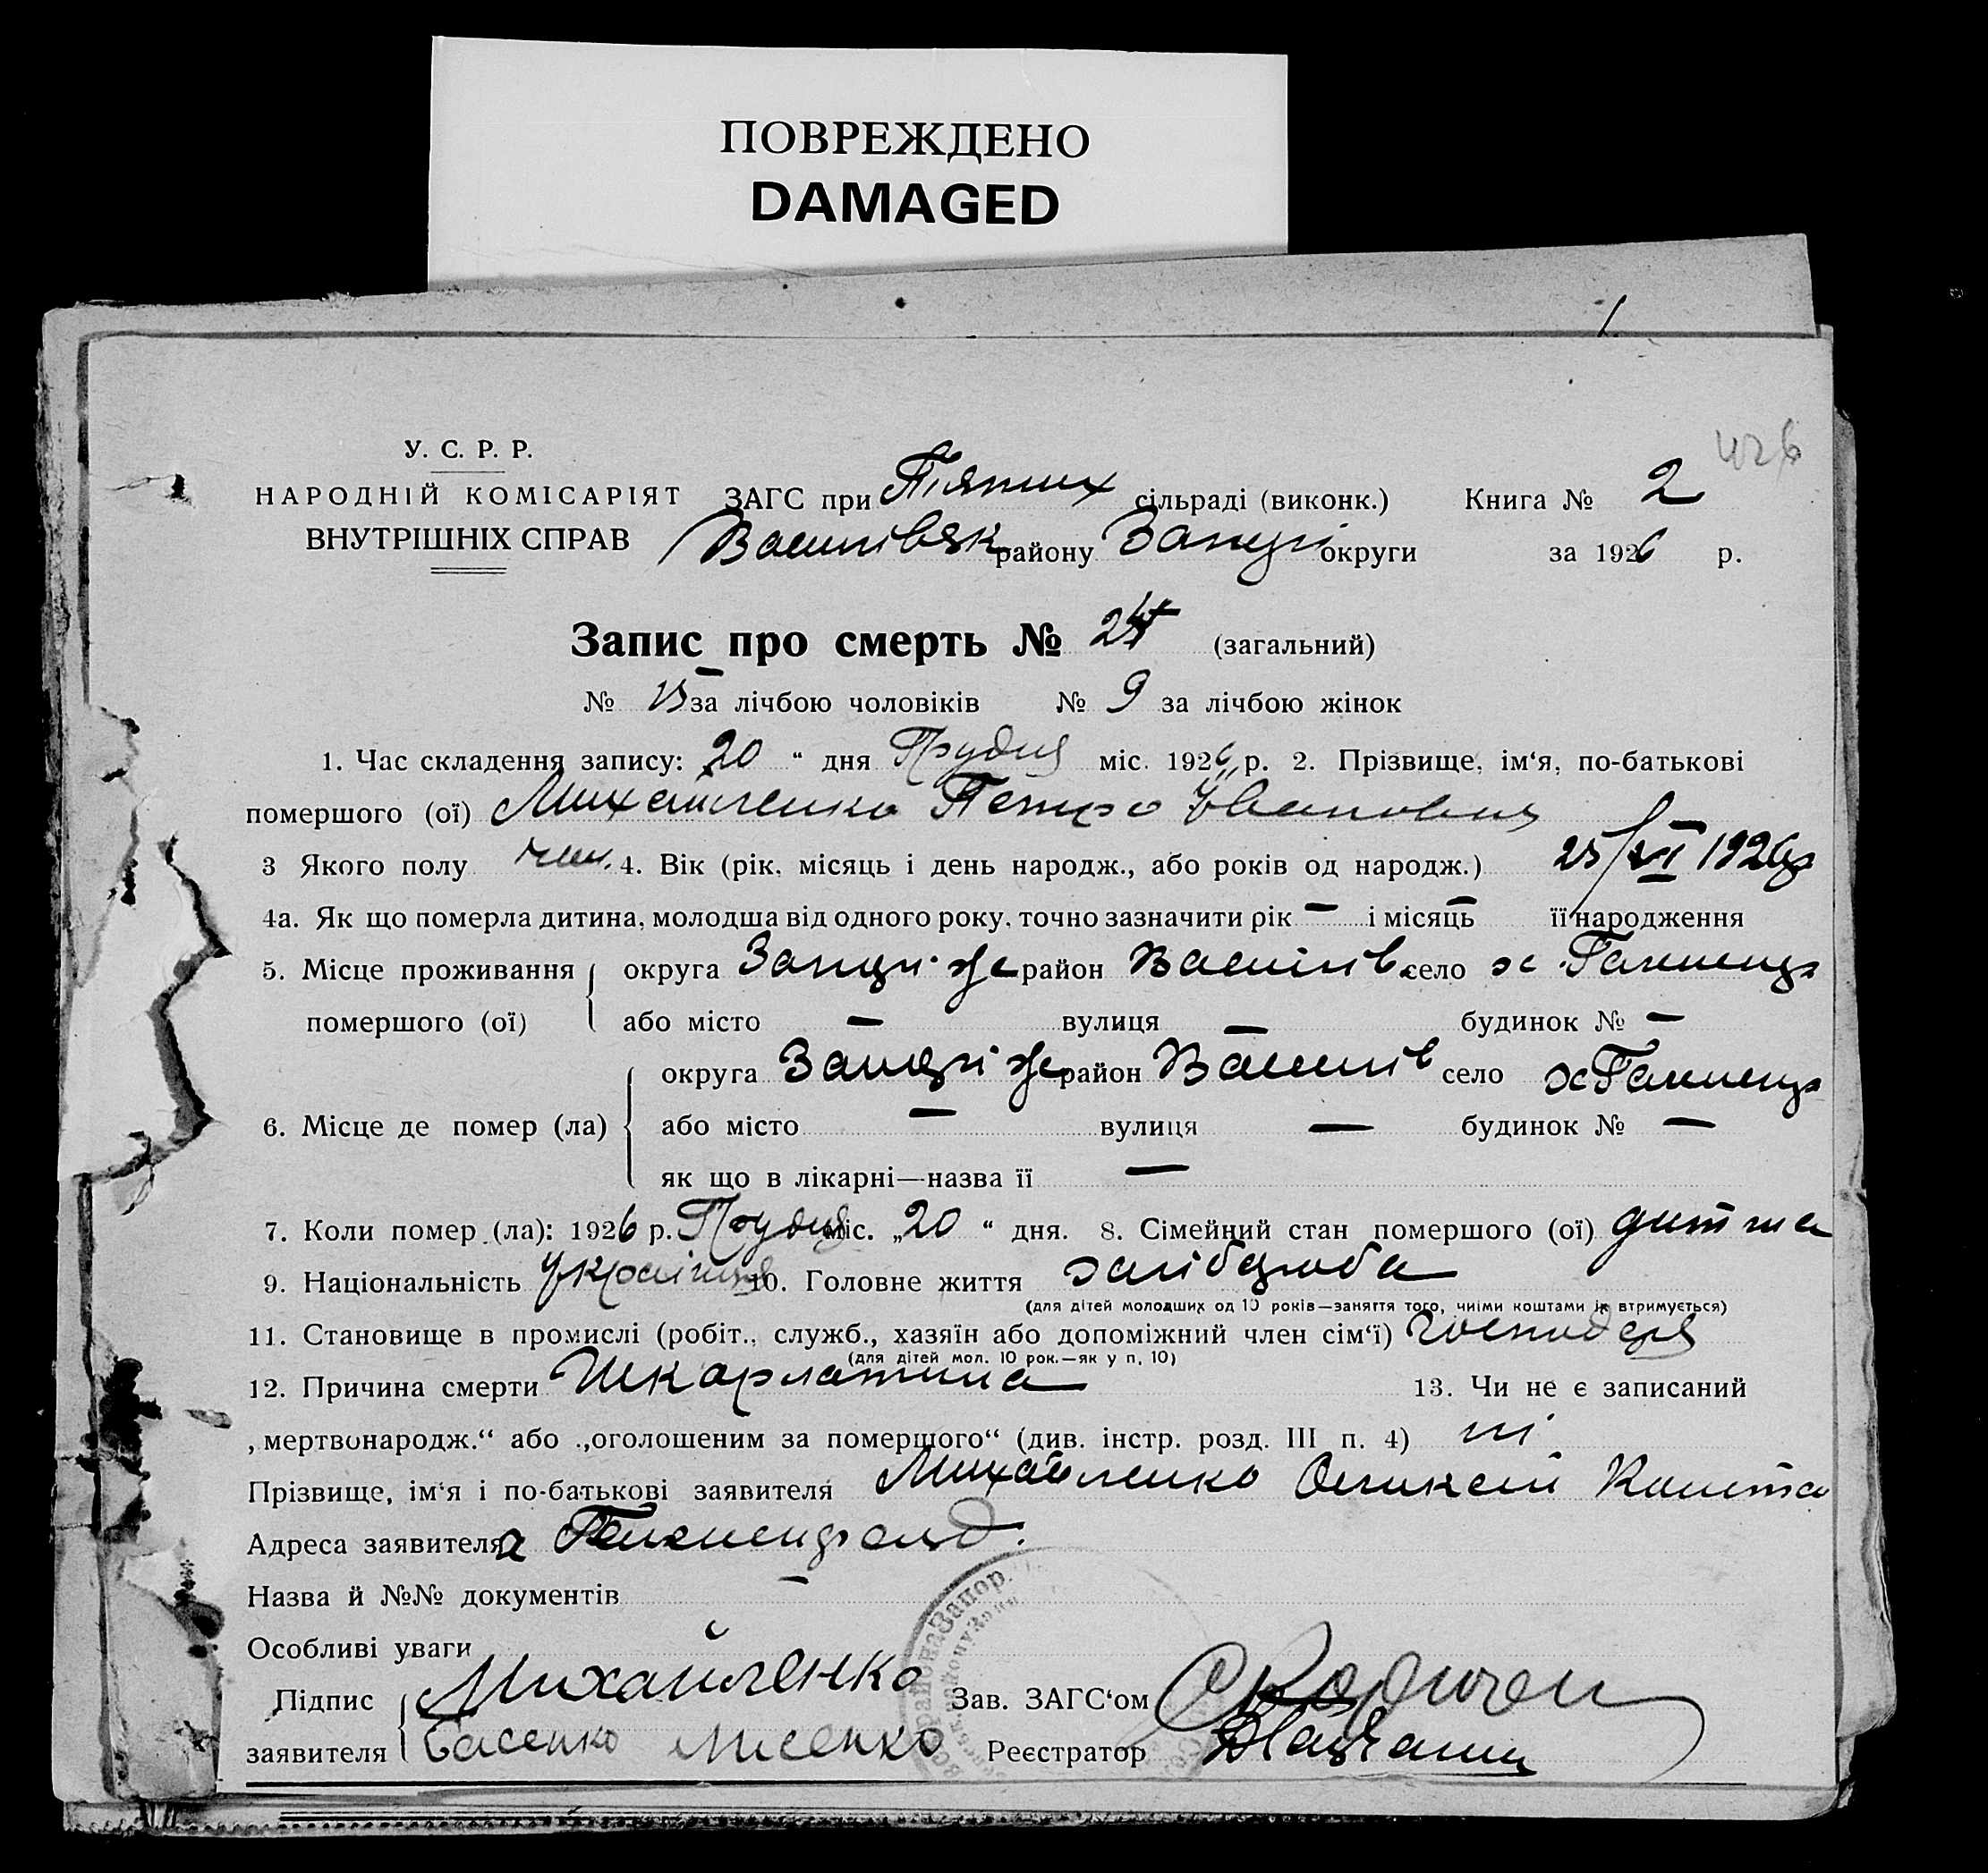 ПОВРЕЖДЕНО
DAMAGED
У. С. Р. Р.
НАРОДНІЙ КОМІСАРІЯТ
ВНУТРІШНІХ СПРАВ
ЗАГС при сільраді (виконк.) Книга № 2
району округи за 1926 р.
Запис про смерть № 24 (загальний)
№ 15 за лічбою чоловіків № 9 за лічбою жінок
1. Час складення запису: 20 “ дня Грудня міс. 1926 р. 2. Прізвище, ім‘я, по-батькові
помершого (ої) Михайленко Петро Іванович
3 Якого полу чол. 4. Вік (рік, місяць і день народж., або років од народж.) 1926р
4а. Як що померла дитина, молодша від одного року, точно зазначити рік — і місяць — її народження
5. Місце проживання округа Запоріж район Василів село х.
помершого (ої) або місто — вулиця — будинок № —
округа Запоріж район Василів село х
6. Місце де помер (ла) або місто — вулиця — будинок № —
як що в лікарні—назва її —
7. Коли помер (ла): 1926 р. Грудня міс. „20 “ дня. 8. Сімейний стан помершого (ої) дитина
9. Національність 10. Головне життя хлібороба
(для дітей молодших од 10 років—заняття того, чиїми коштами їх втримується)
11. Становище в промислі (робіт., служб., хазяїн або допоміжний член сім‘ї) господаря
(для дітей мол. 10 рок.—як у п. 10)
12. Причина смерти Шкарлатина 13. Чи не є записаний
„мертвонародж.“ або „оголошеним за помершого“ (див. інстр. розд. III п. 4) ні
Прізвище, ім‘я і по-батькові заявителя Михайленко Олексій
Адреса заявителя
Назва й №№ документів —
Особливі уваги
Підпис Михайленко Зав. ЗАГС‘ом
заявителя Лисенко Реєстратор